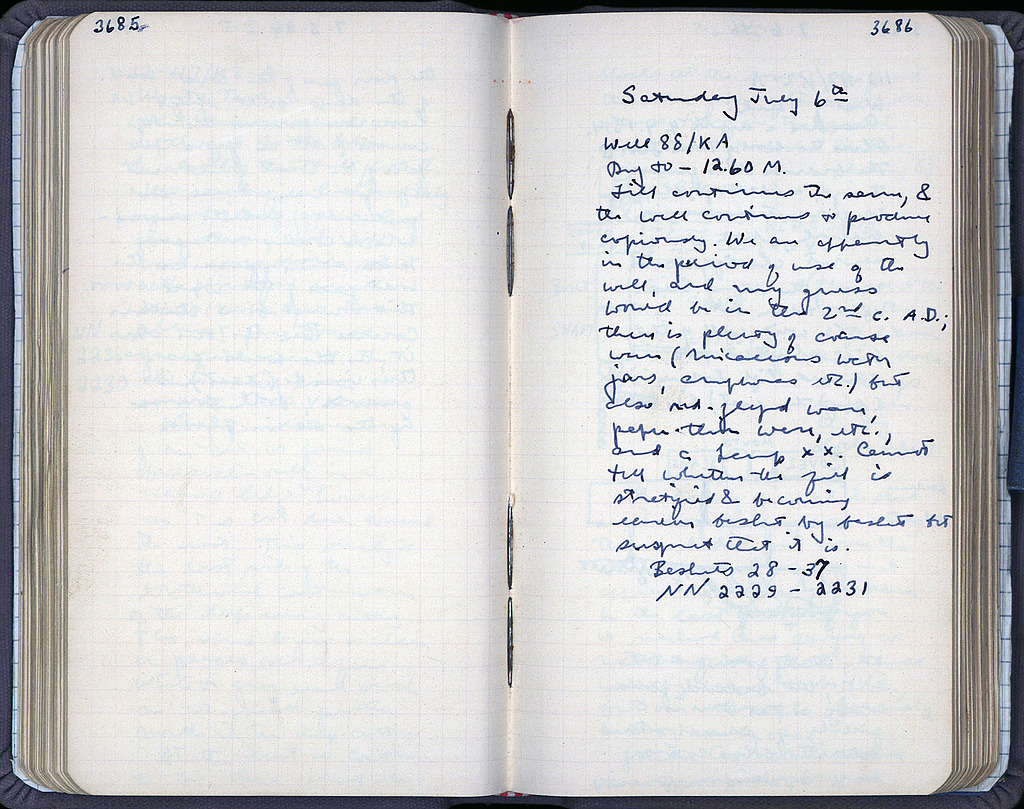 3685
3686
Saturday July 6th
Well 88/KA
Dug to - 12.60 M.
Fill continues the same, &
the well continues to produce
copiously. We are apparently
in the period of use of the
well, and my guess
would be in the 2nd c. A.D.;
there is plenty of coarse
ware (micaceous water
jars, amphoras etc.) but
also red-glazed ware,
paper-thin ware, etc.,
and a lamp xx. Cannot
tell whether the fill is
stratified & becoming
earlier basket by basket but
suspect that it is.
Baskets 28 - 37
NN 2229 - 2231